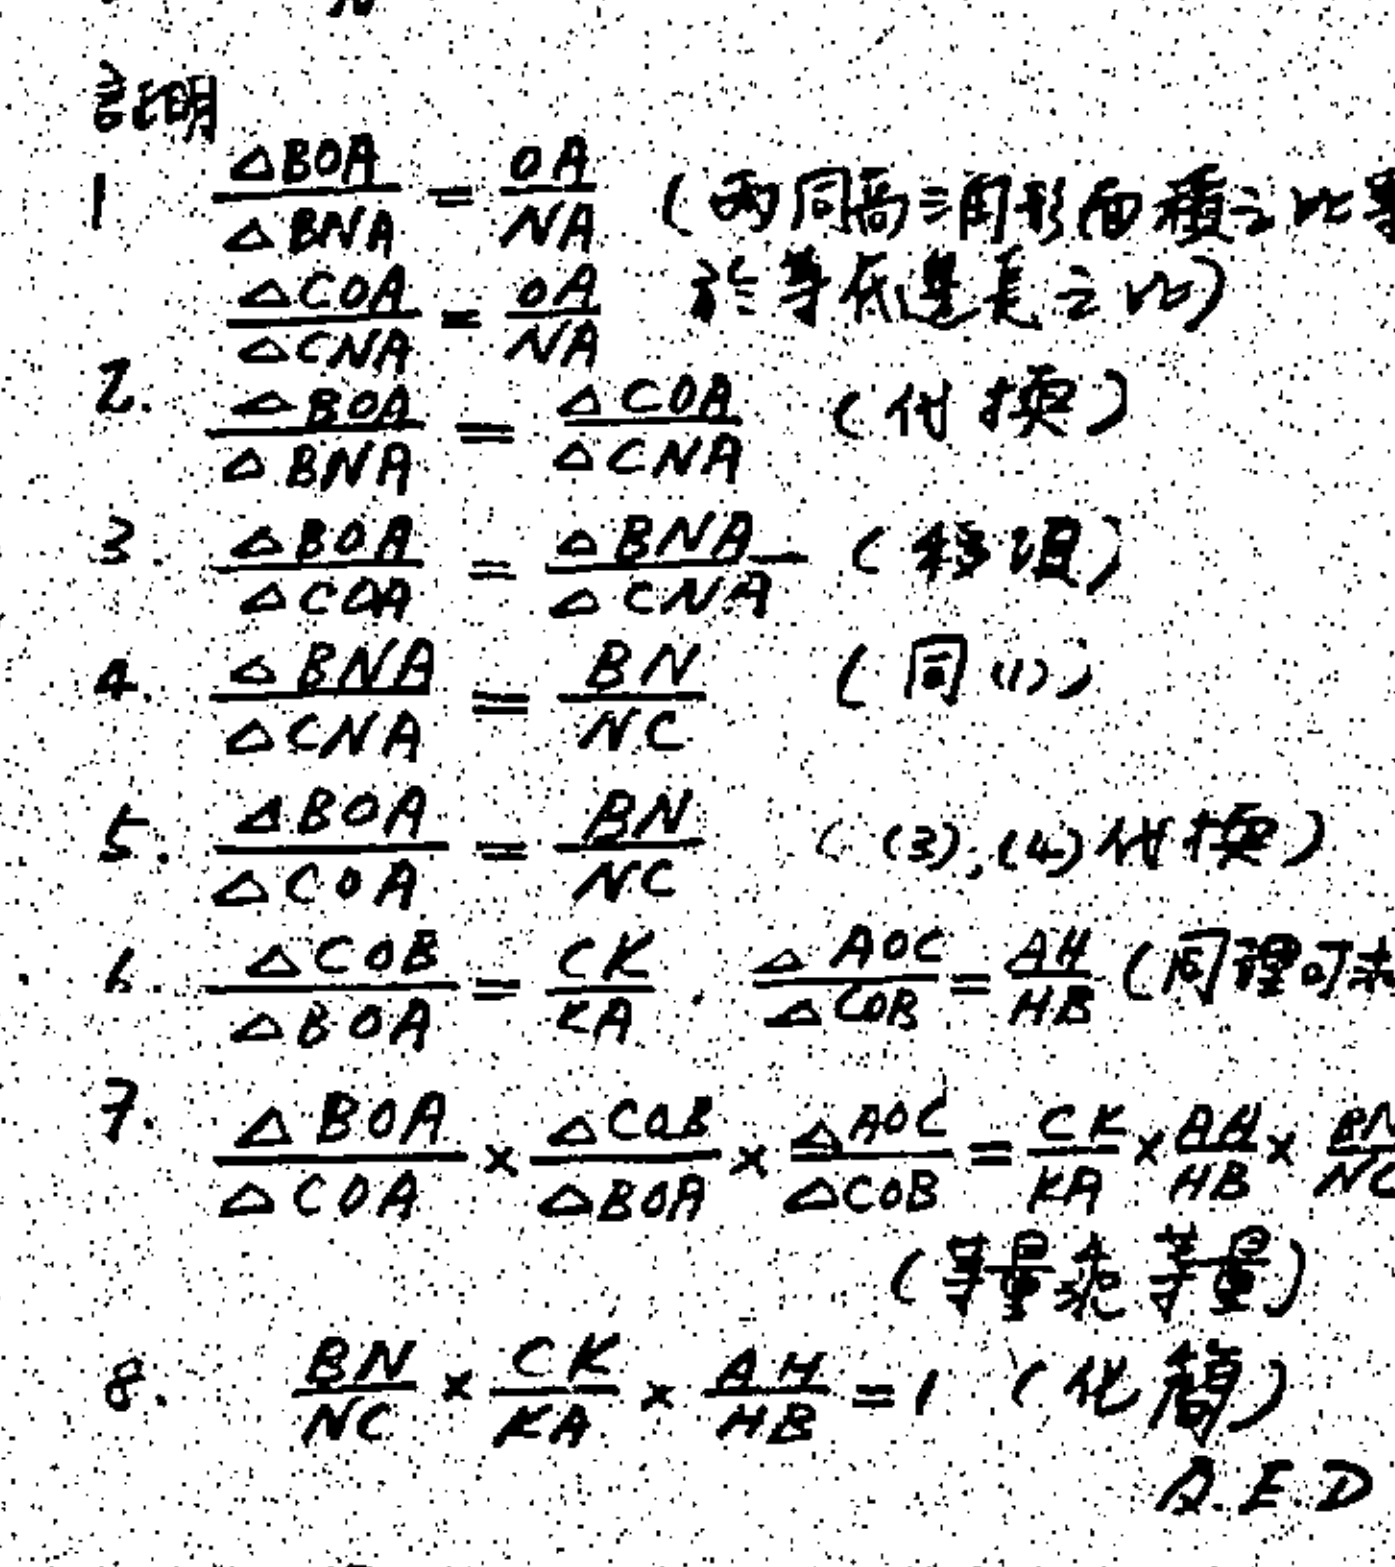 証明
1 △BOA/△BNA = OA/NA (兩同高三角形面積之比等
△COA/△CNA = OA/NA 於等底邊長之比)
2. △BOA/△BNA = △COA/△CNA (代換)
3. △BOA/△COA = △BNA/△CNA (移項)
4. △BNA/△CNA = BN/NC (同(1))
5. △BOA/△COA = BN/NC ((3),(4)代換)
6. △COB/△BOA = CK/KA . △AOC/△COB = AH/HB (同理可求
7. △BOA/△COA × △COB/△BOA × △AOC/△COB = CK/KA × AH/HB × BN/NC
(等量乘等量)
8. BN/NC × CK/KA × AH/HB = 1 (化簡)
Q.E.D